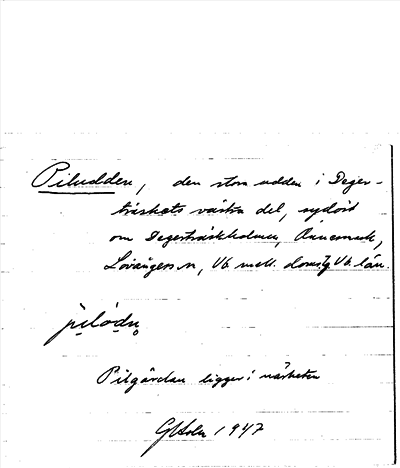 Piludden, den stora udden i Deger-
träskets västra del, sydost
om Degerträskholmen, Ånnemark,
Lövångers sn, Vb. mell. doms. Vb. län.
Pilgärdan ligger i närheten
1947